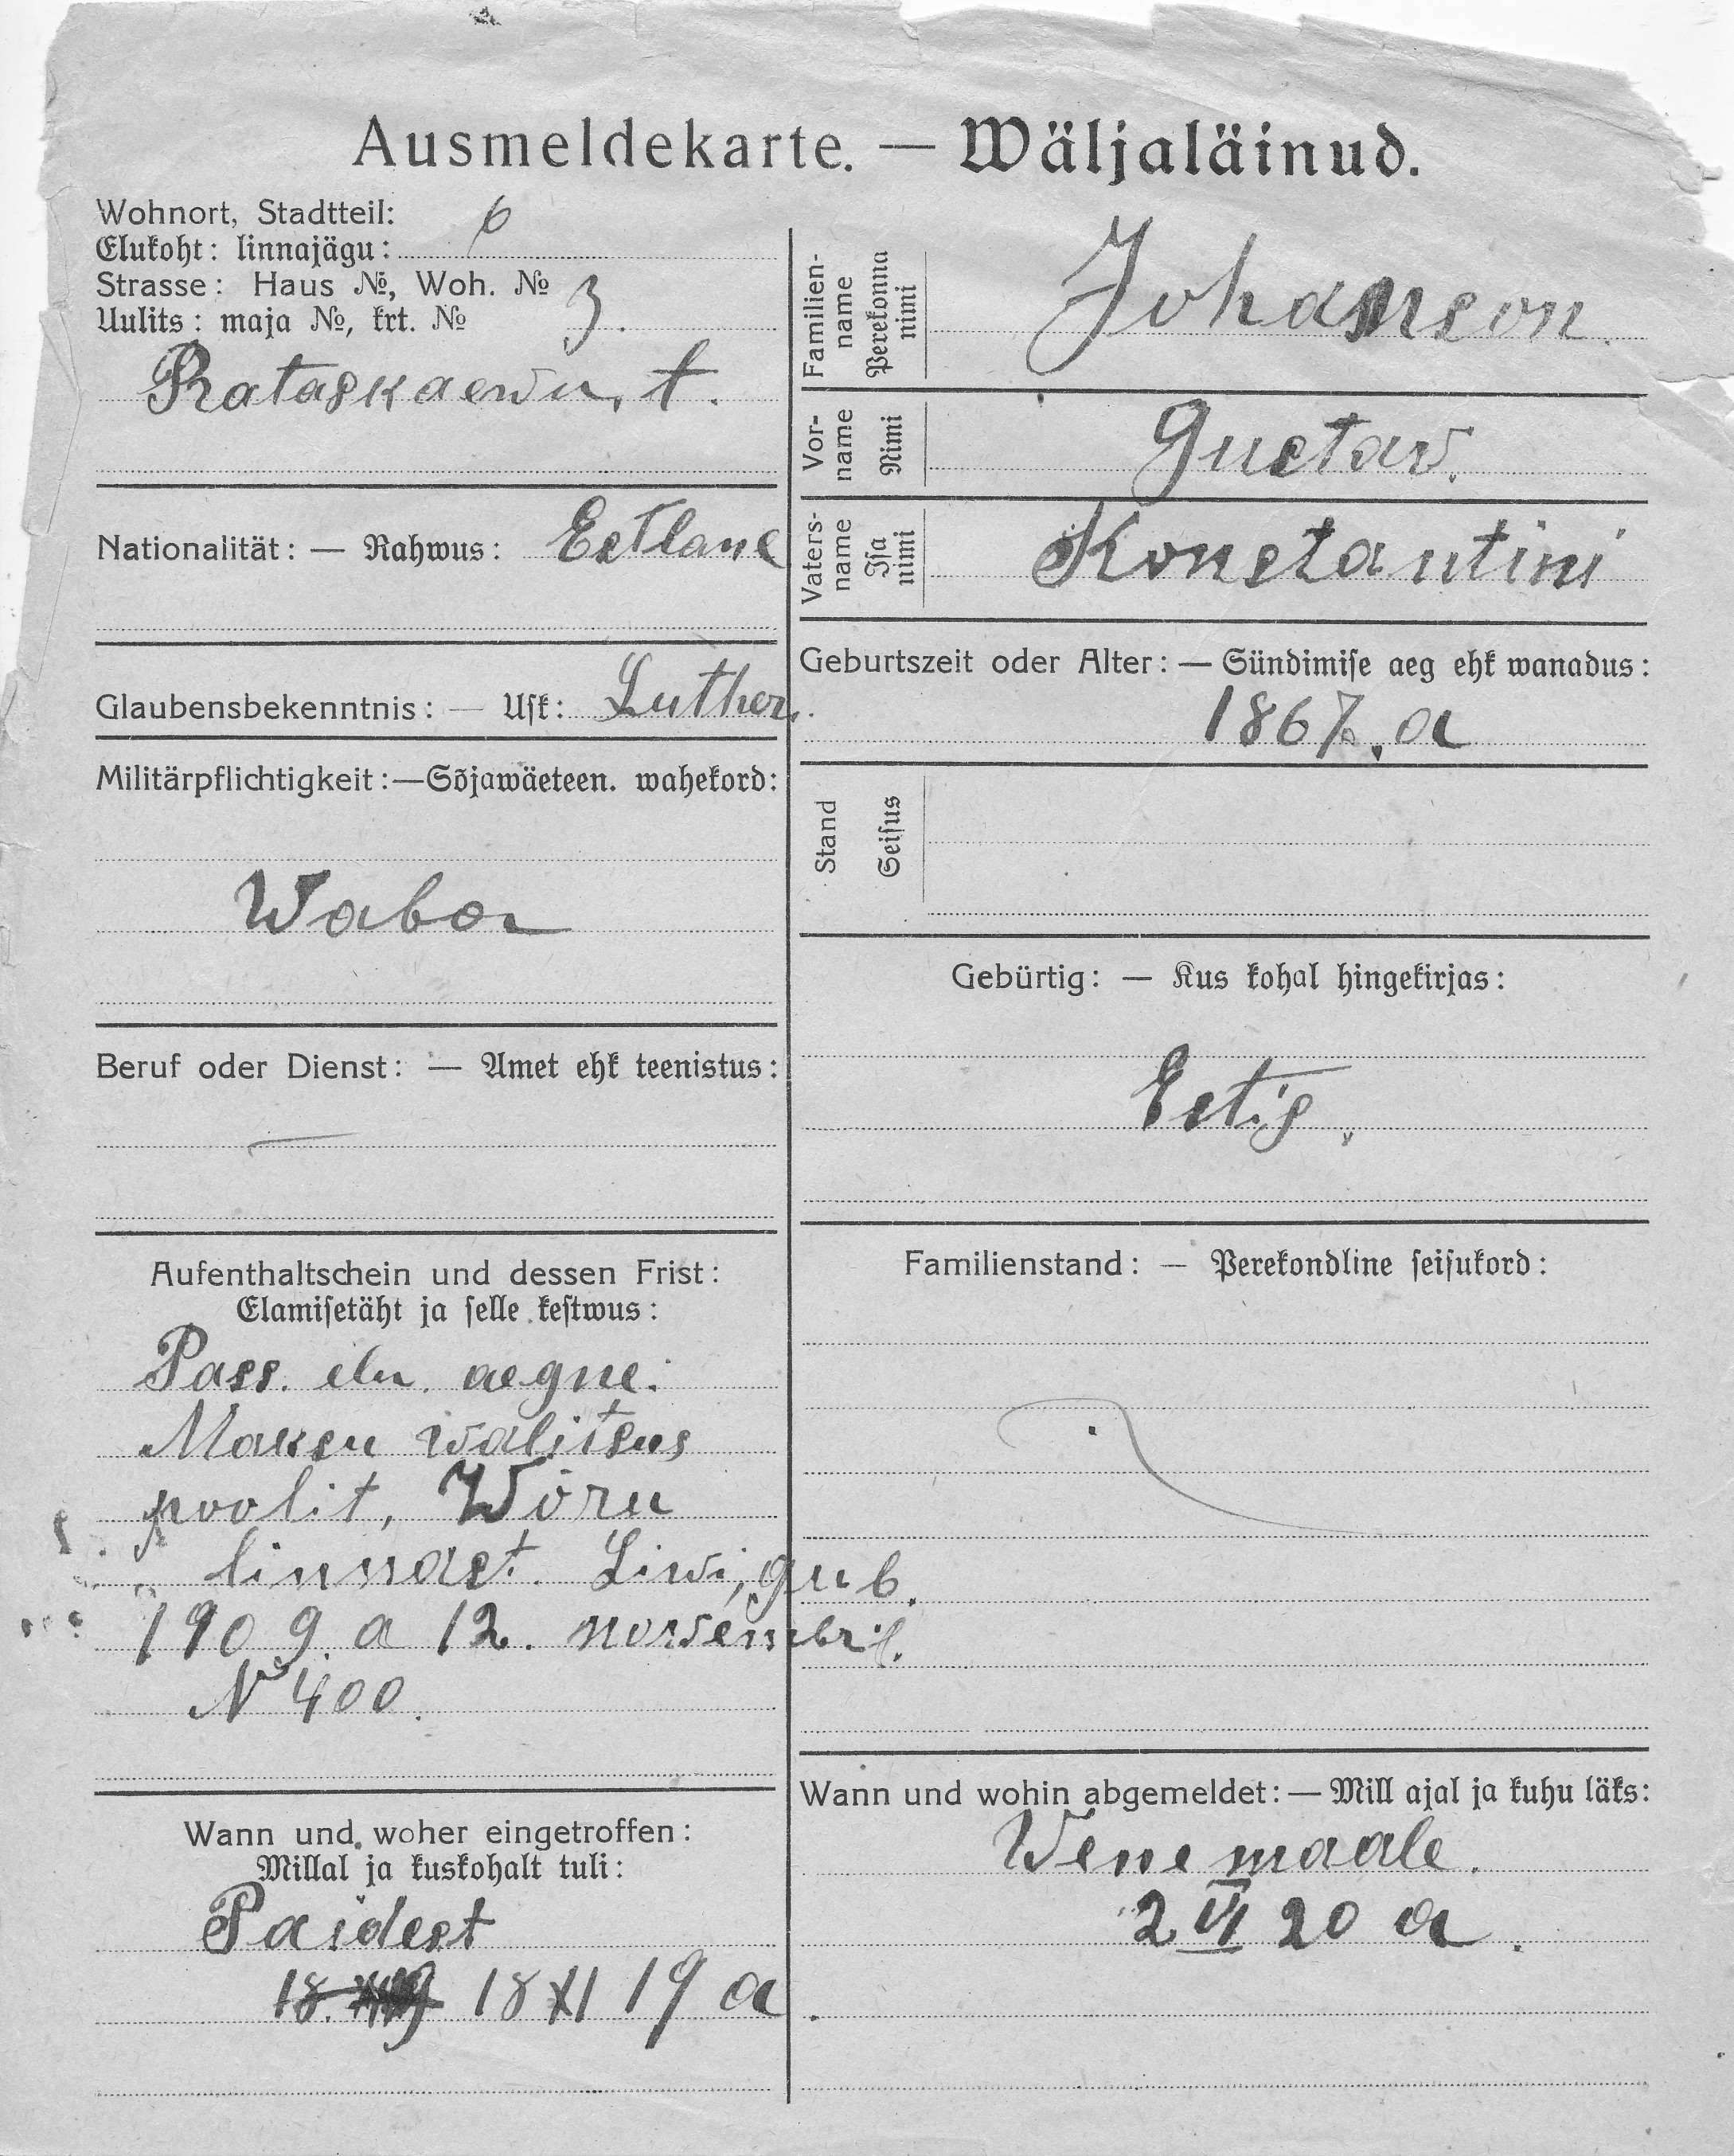 Ausmeldekarte. — Wäljaläinud.
Wohnort, Stadtteil: 6
Elukoht: linnajägu:
Strasse: Haus №, Woh. № 3.
Uulits: maja №, krt. №
Rataskaewu, t.
Nationalität: — Rahwus: Eestlane
Glaubensbekenntnis: — Usk: Luther.
Militärpflichtigkeit:—Sõjawäeteen. wahekord:
Waba
Beruf oder Dienst: — Amet ehk teenistus:
—
Aufenthaltschein und dessen Frist:
Elamisetäht ja selle kestwus:
Pass. elu. aegne.
Maksu walitsus
poolit, Wõru
linnast. Liiwi, gub.
1909. a 12. nowembril.
N 400.
Wann und woher eingetroffen:
Millal ja kuskohalt tuli:
Paidest
18 XI 19 a.
Familien-
name
Perekonna
nimi
Johanson.
Vor-
name
Nimi
Gustav.
Vaters-
name
Isa
nimi
Konstantini
Geburtszeit oder Alter: — Sündimise aeg ehk wanadus:
1867. a
Stand
Seisus
Gebürtig: — Kus kohal hingekirjas:
Familienstand: — Perekondline seisukord:
Wann und wohin abgemeldet: — Mill ajal ja kuhu läks:
Wenemaale.
2 VI 20 a.